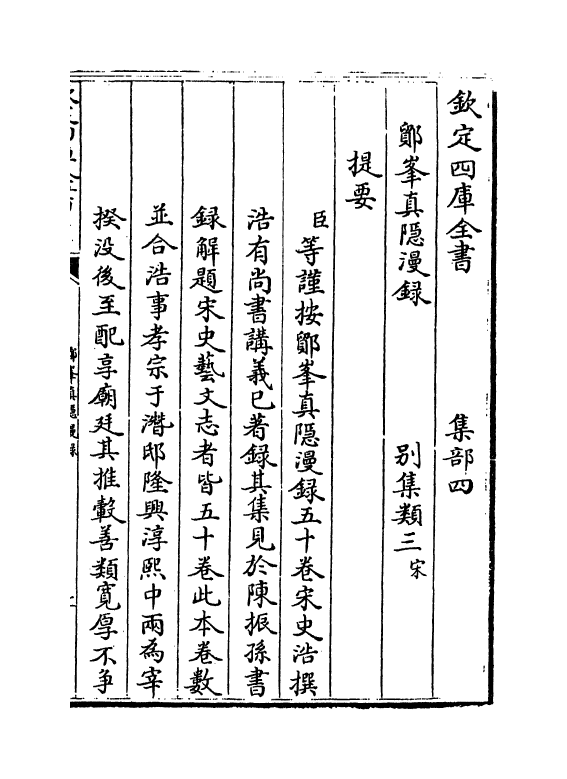 欽定四庫全書　集部四
鄮峯真隠漫録　别集類三宋
提要
臣等謹按鄮峯真隠漫録五十卷宋史浩撰
浩有尚書講義已著録其集見於陳振孫書
録解題宋史藝文志者皆五十卷此本卷數
並合浩事孝宗于潛邸隆興淳熙中兩為宰
揆没後至配享廟廷其推轂善類寛厚不争
鄮峯真隠漫録